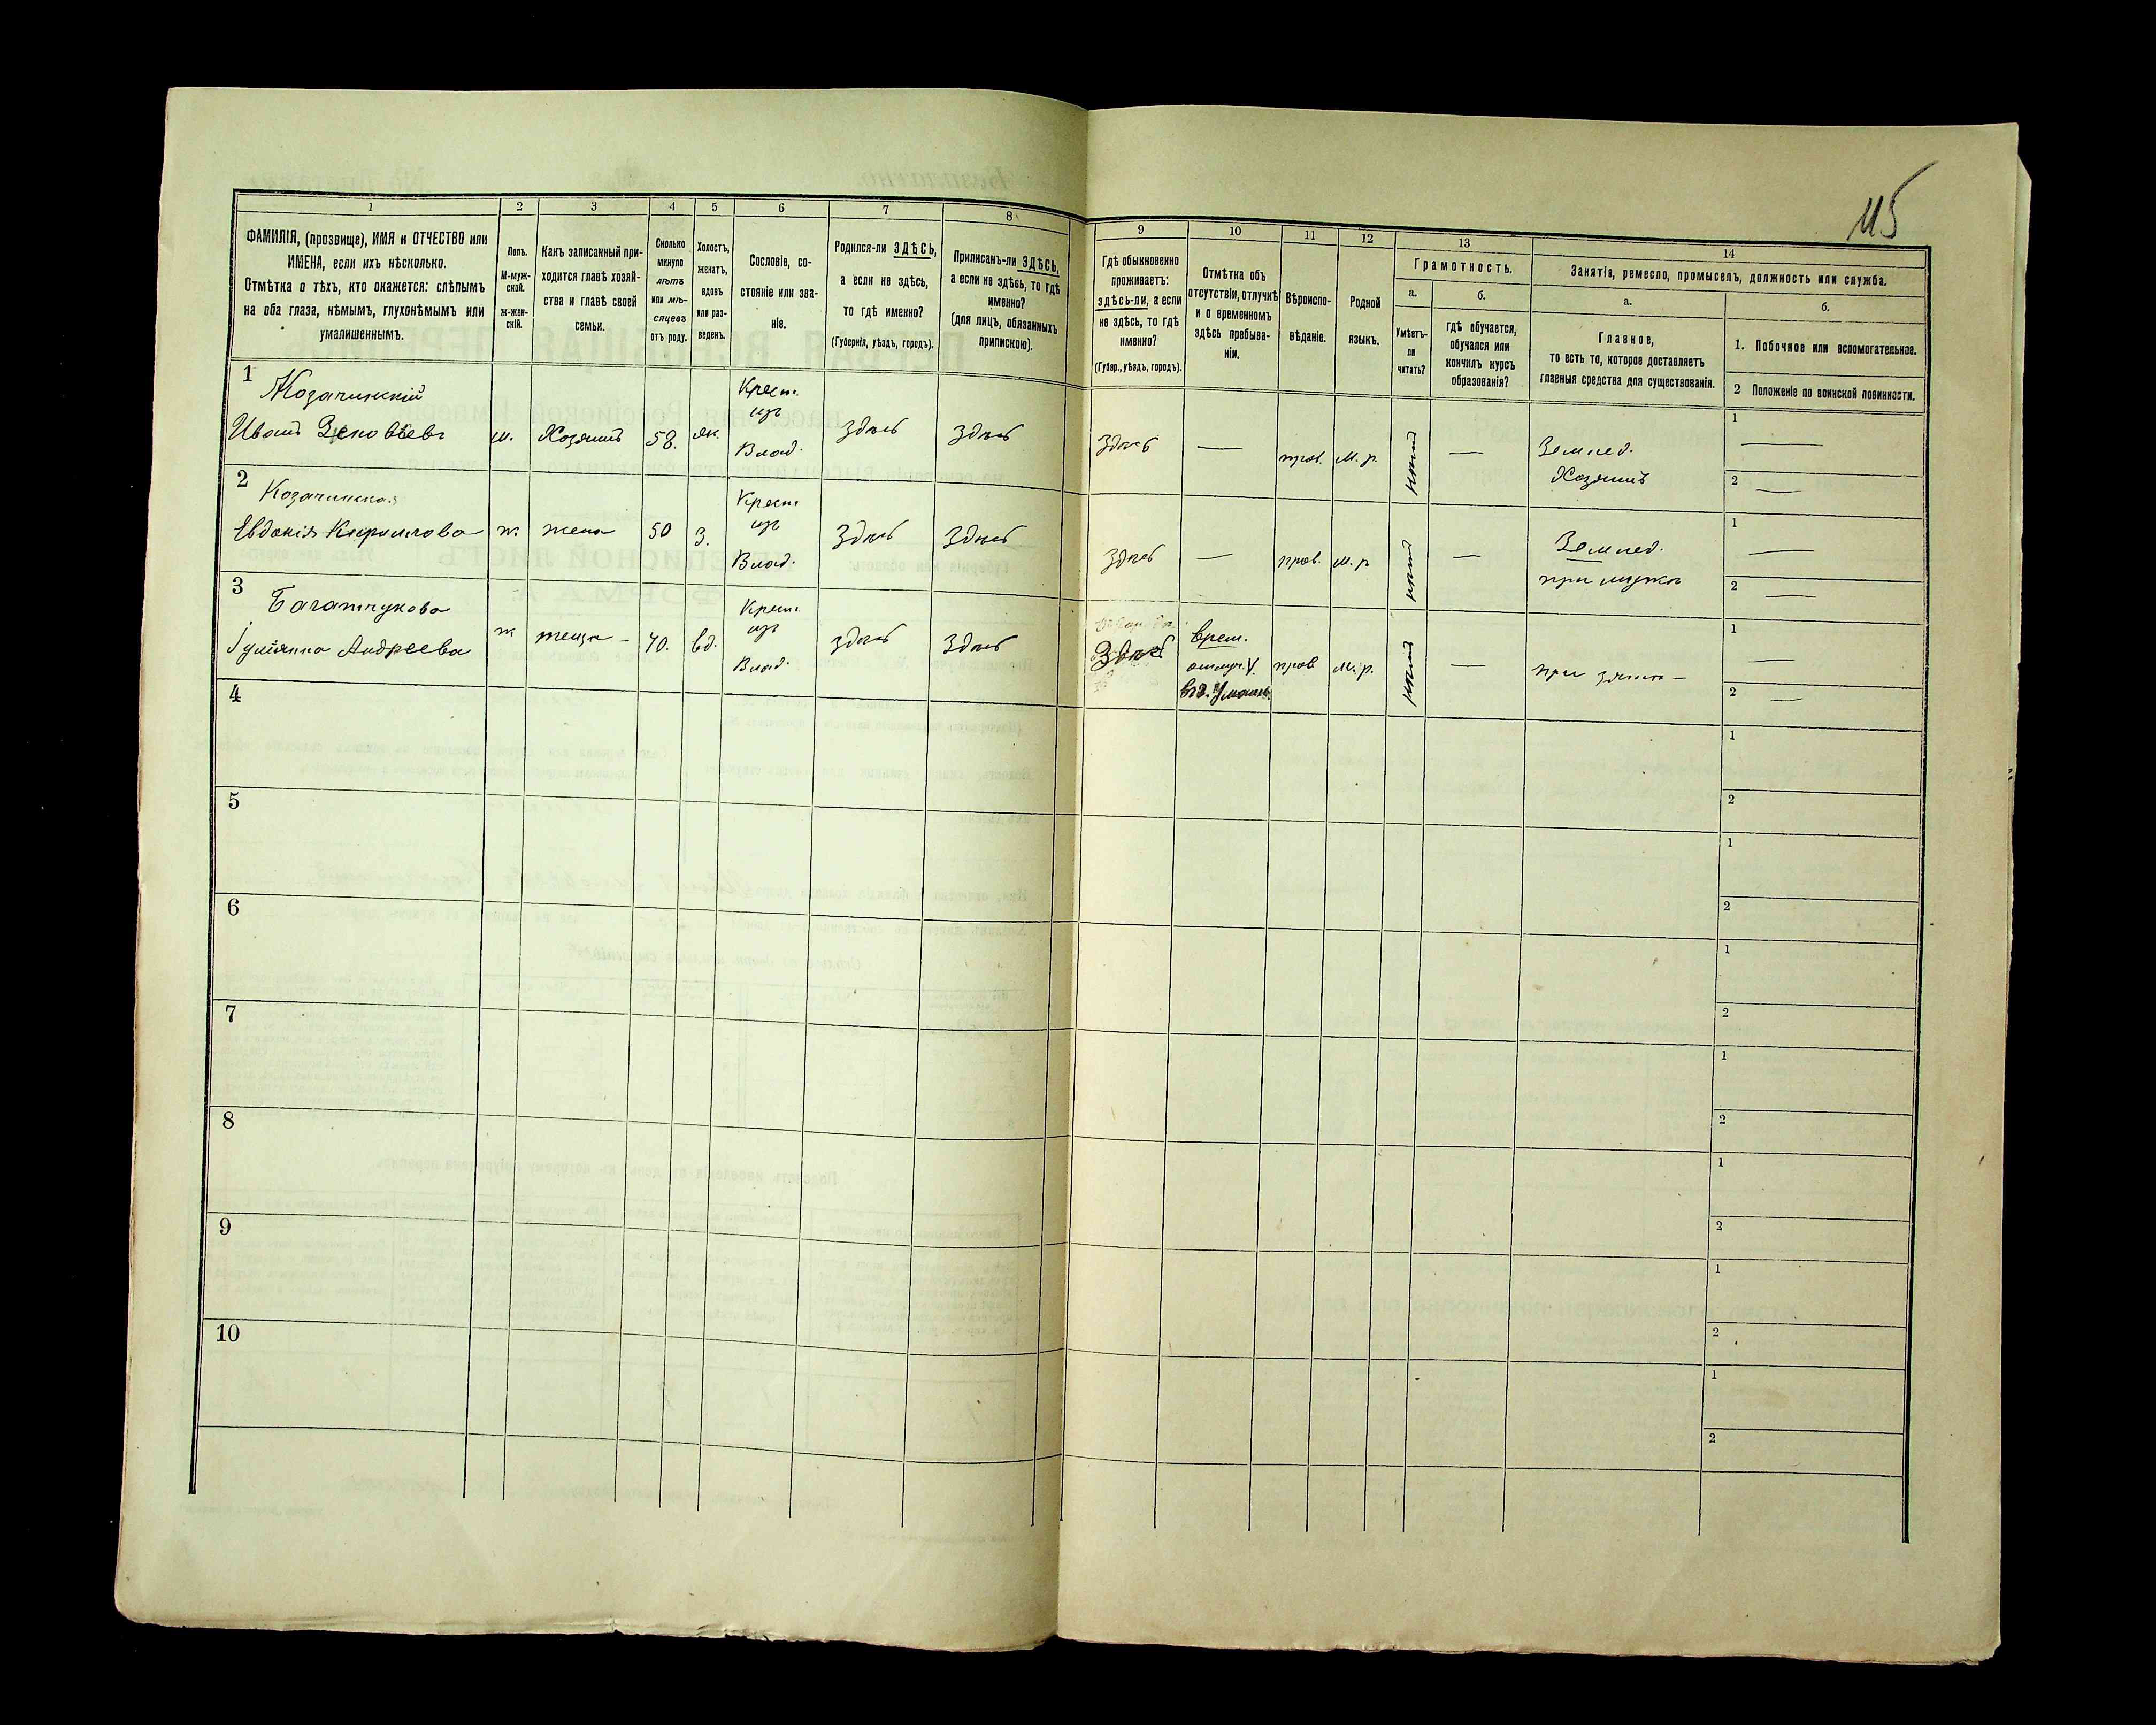 115
1
2
3
4
5
6
7
8
ФАМИЛІЯ, (прозвище), ИМЯ и ОТЧЕСТВО или
ИМЕНА, если ихъ нѣсколько.
Отмѣтка о тѣхъ, кто окажется: слѣпымъ
на оба глаза, нѣмымъ, глухонѣмымъ или
умалишеннымъ.
Полъ.
М-муж-
ской.
Ж-жен-
скій.
Какъ записанный при-
ходится главѣ хозяй-
ства и главѣ своей
семьи.
Сколько
минуло
лѣтъ
или мѣ-
сяцевъ
отъ роду.
Холостъ,
женатъ,
вдовъ
или раз-
веденъ.
Сословіе, со-
стояніе или зва-
ніе.
Родился-ли ЗДѢСЬ,
а если не здѣсь,
то гдѣ именно?
(Губернія, уѣздъ, городъ).
Приписанъ-ли ЗДѢСЬ,
а если не здѣсь, то гдѣ
именно?
(для лицъ, обязанныхъ
припискою).
9
10
11
12
13
14
Гдѣ обыкновенно
проживаетъ:
здѣсь-ли, а если
не здѣсь, то гдѣ
именно?
(Губер., уѣздъ, городъ).
Отмѣтка объ
отсутствіи, отлучкѣ
и о временномъ
здѣсь пребыва-
ніи.
Вѣроиспо-
вѣданіе.
Родной
языкъ.
Грамотность.
а.
Умѣетъ-
ли
читать?
б.
гдѣ обучается,
обучался или
кончилъ курсъ
образованія?
Занятія, ремесло, промыселъ, должность или служба.
а.
Главное,
то есть то, которое доставляетъ
главныя средства для существованія.
б.
1. Побочное или вспомогательное.
2 Положеніе по воинской повинности.
1
Козачинскій
Иванъ Зеновьевъ
м.
Хозяинъ
58.
жн.
Крест.
изъ
Влад.
здѣсь
здѣсь
здѣсь
—
прав.
м. р.
нѣтъ
—
Землед.
Хозяинъ
1
—
2
—
2
Козачинская
Евдокія Кирилова
ж.
жена
50
З.
Крест
изъ
Влад.
здѣсь
здѣсь
здѣсь
—
прав.
м. р
нѣтъ
—
Землед.
при мужѣ
1
—
2
—
3
Багатчукова
Іуліанна Андреева
ж
теща —
70.
вд.
Крест.
изъ
Влад.
здѣсь
здѣсь
здѣсь
врем.
отлуч.
прав
м. р.
нѣтъ
—
при зятѣ —
1
—
2
—
4
1
2
5
1
2
6
1
2
7
1
2
8
1
2
9
1
2
10
1
2